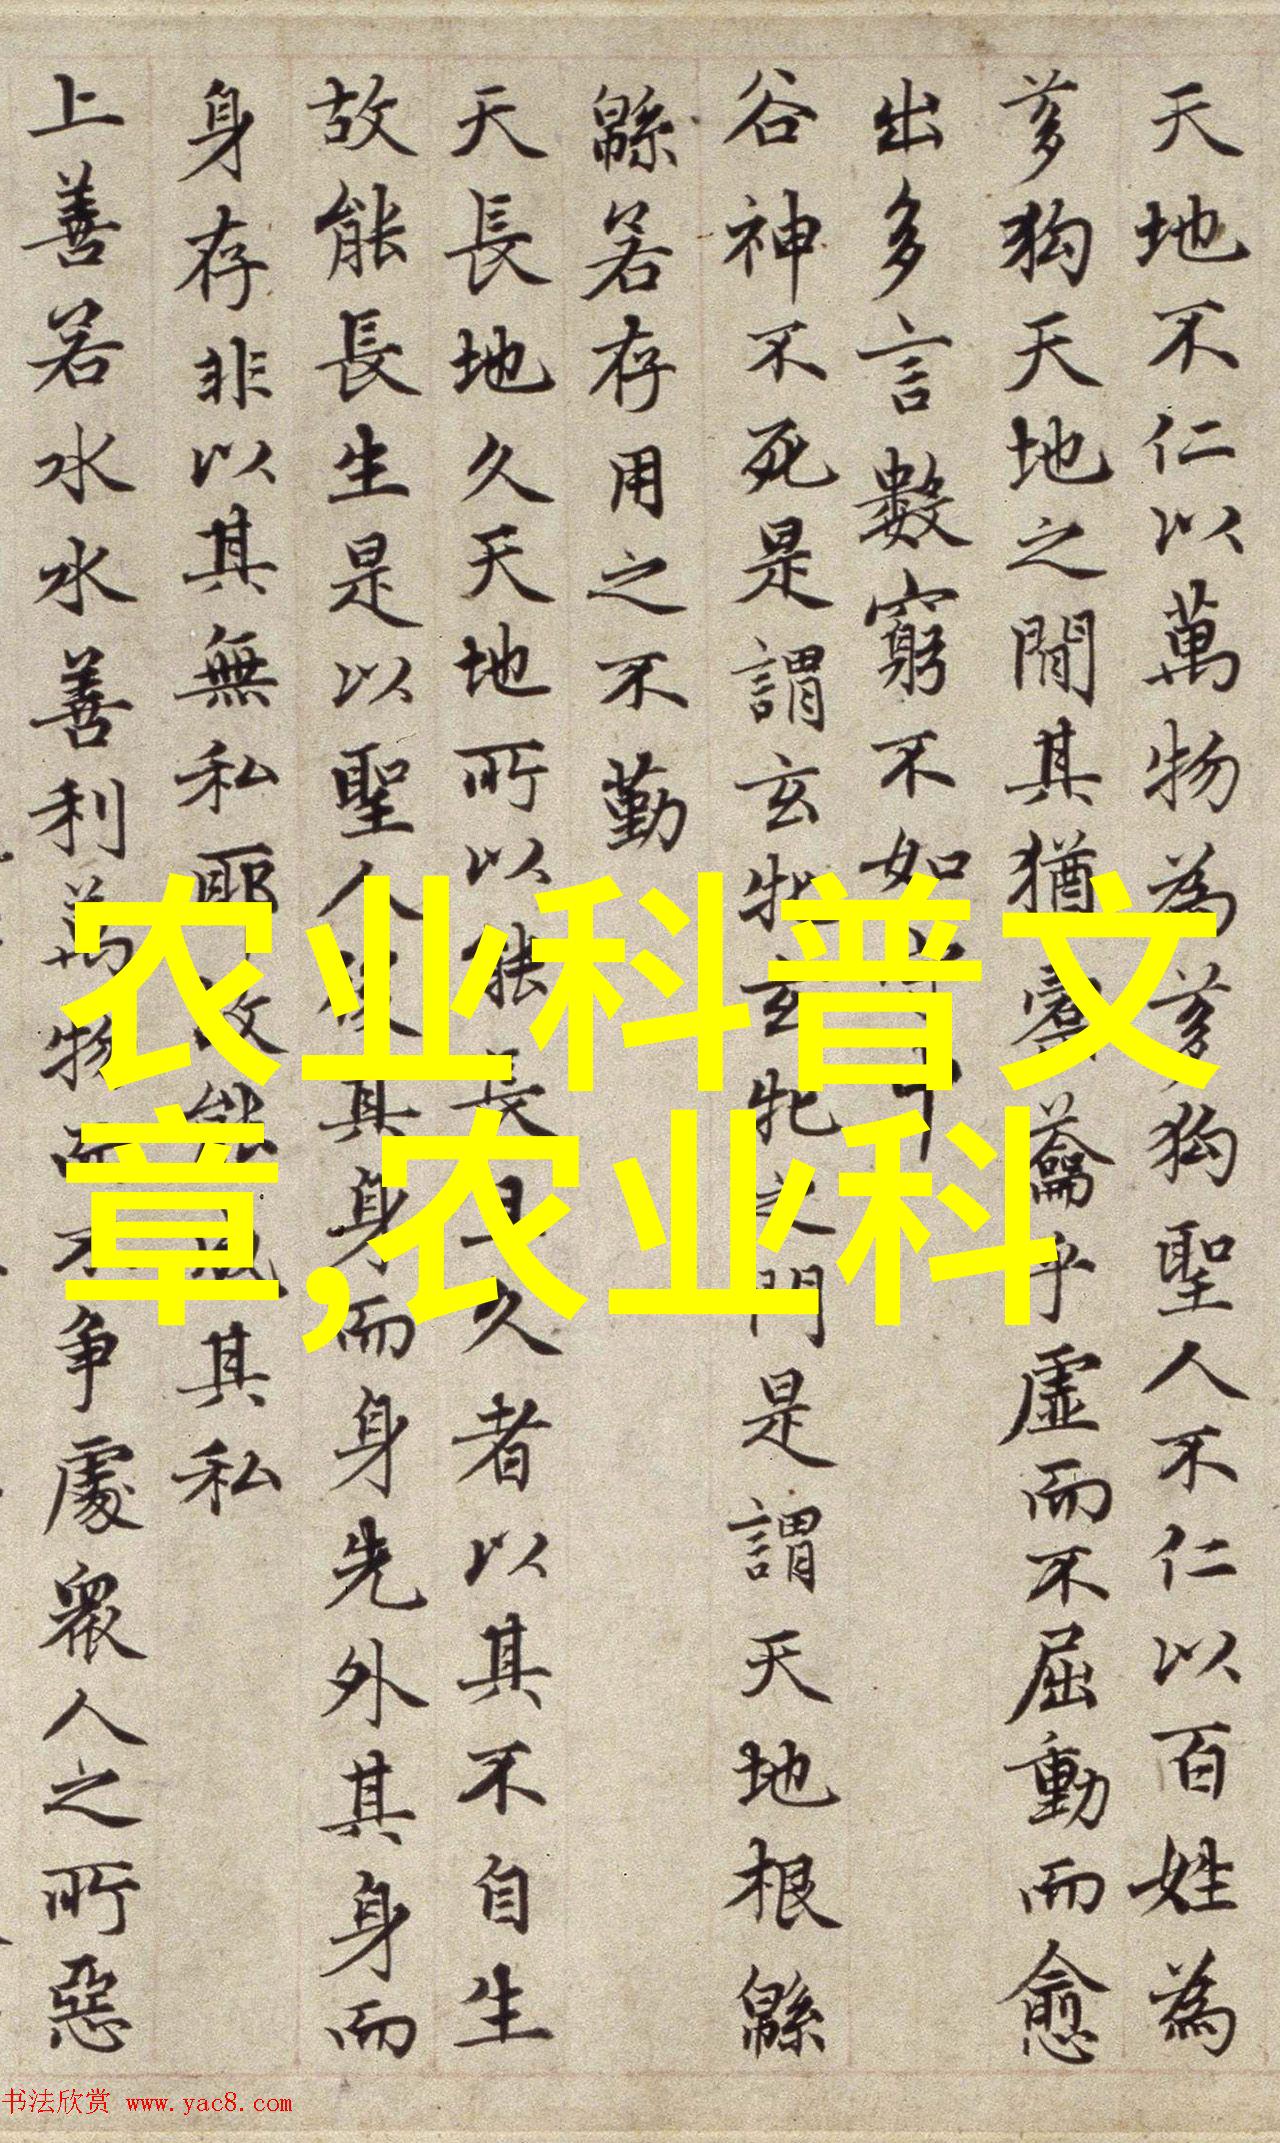 天地不仁以萬物為芻狗聖人不仁以百姓為
芻狗天地之間其猶橐籥乎虛而不屈動而愈
出多言數窮不如守中
谷神不死是謂玄牝玄牝之門是謂天地根緜
緜若存用之不勤
天長地久天地所以能長且久者以其不自生
故能長生是以聖人後其身而身先外其身而
身存非以其無私耶故能成其私
上善若水水善利萬物而不争處衆人之所惡
农业科普文
章,农业科
书法欣赏 www.yac8.com